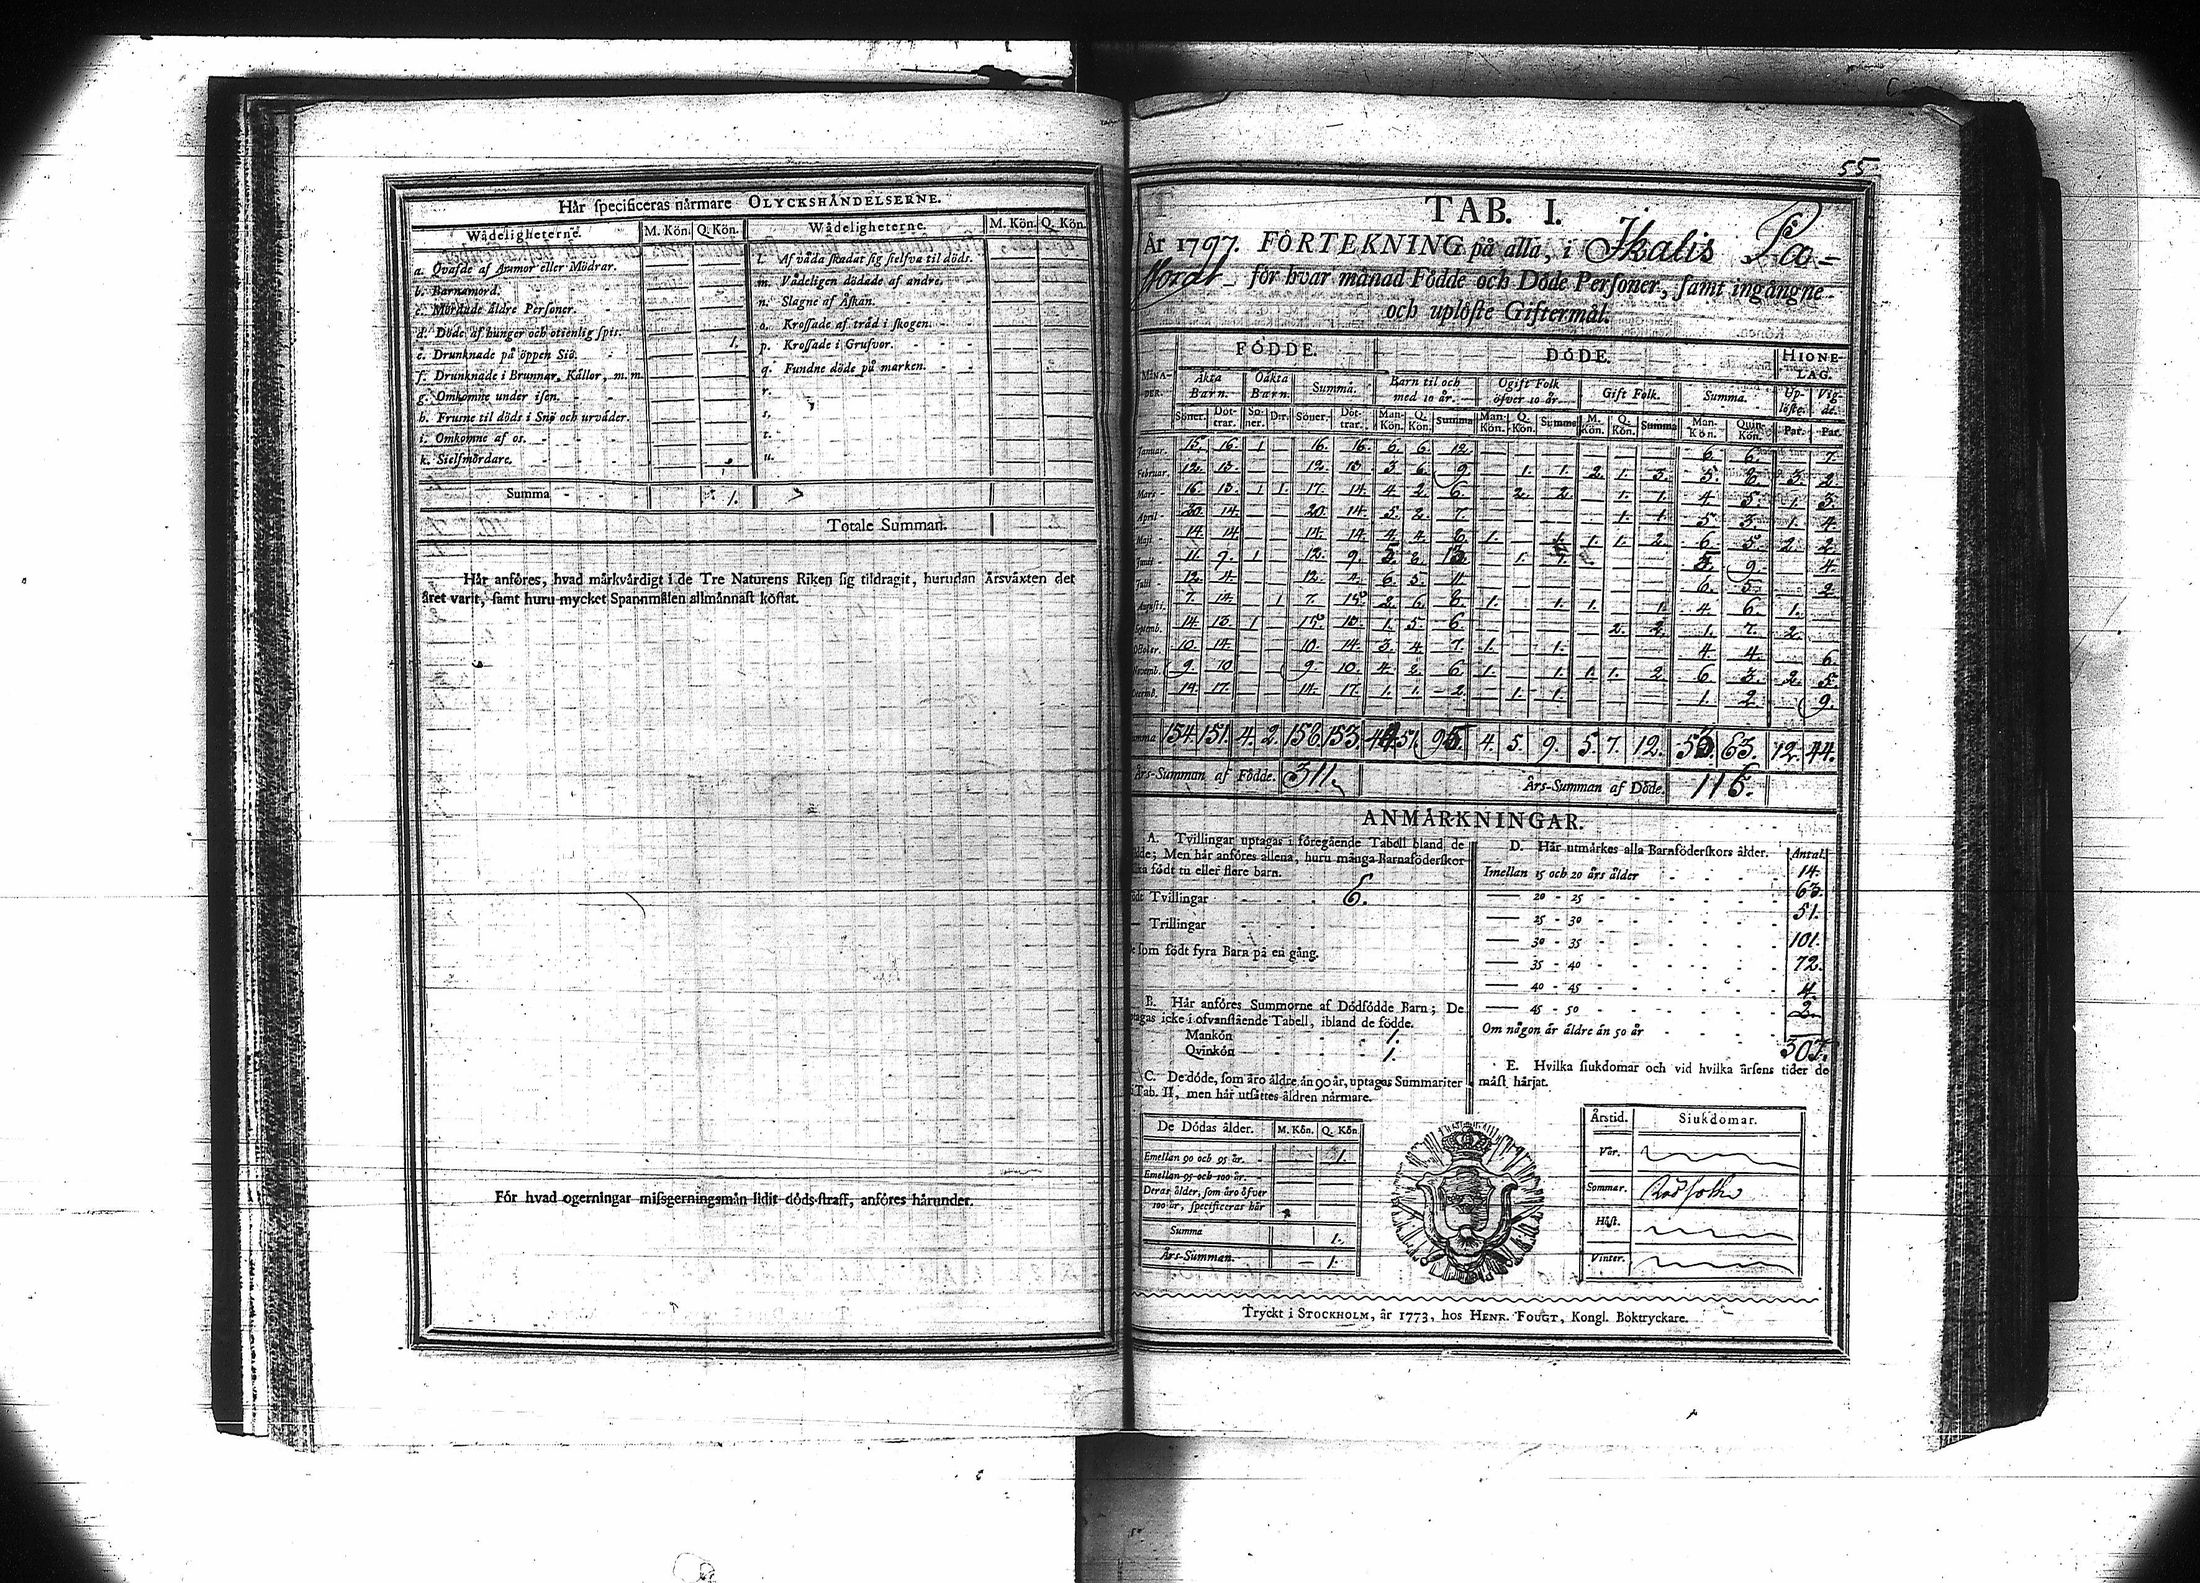 Här specificeras närmare OLYCKSHÄNDELSERNE.
Wådeligheterne. M. Kön. Q. Kön. Wådeligheterne. M. Kön. Q. Kön.
a. Qvafde af Ammor eller Mödrar. l. Af våda skadat sig sielfva til döds.
b. Barnamord. m. Vådeligen dödade af andre.
c. Mördade äldre Personer. n. Slagne af Åskan.
d. Döde af hunger och otienlig spis. o. Krossade af träd i skogen.
e. Drunknade på öppen Siö. 1. p. Krossade i Grufvor.
f. Drunknade i Brunnar, Källor, m. m. q. Fundne döde på marken.
g. Omkomne under isen. r.
h. Frusne til döds i Snö och urväder. s.
i. Omkomne af os. t.
k. Sielfmördare. u.
Summa 1.
Totale Summan.
Här anföres, hvad märkvärdigt i de Tre Naturens Riken sig tildragit, hurudan Årsväxten det
året varit, samt huru mycket Spannmålen allmännast kostat.
För hvad ogerningar missgerningsmän lidit döds-straff, anföres härunder.
55
TAB. I.
År 1797. FÖRTEKNING på alla, i Ikalis Pa-
storat för hvar månad Födde och Döde Personer, samt ingångne
och uplöste Giftermål.
FÖDDE. DÖDE. HIONE-LAG.
MÅNA-DER. Äkta Barn. Oäkta Barn. Summa. Barn til och med 10 år. Ogift Folk öfver 10 år. Gift Folk. Summa. Up-löste. Vig-de.
Söner. Döt-trar. Sö-ner. D:r. Söner. Döt-trar. Man-Kön. Q. Kön. Summa Man-Kön. Q. Kön. Summa M. Kön. Q. Kön. Summa Man-Kön. Quin-Kön. Par. Par.
Januar. 15. 16. 1 16. 16. 6. 6. 12. 6. 6. 7.
Februar. 12. 13. 12. 13 3 6. 9. 1. 1. 2. 1. 3. 5. 8. 3. 2.
Mars 16. 13. 1 1. 17. 14. 4. 2. 6. 2. 2. 1. 1. 4 5. 1. 3.
April 20. 14. 20. 14. 5. 2. 7. 1. 1. 5 3. 1. 4.
Maji 14. 14. 14. 14. 4. 4. 8. 1. 1. 1. 1. 2. 6. 5. 2. 2.
Junii 11. 9. 1 12. 9. 5. 8. 13. 1. 9. 4.
Julii 12. 4. 12. 4. 6. 5. 11. 6. 5. 2.
Augusti. 7. 14. 1 7. 15. 2. 6. 8. 1. 1. 1. 1. 4. 6. 1.
Septemb. 14. 13. 1 15. 13. 1. 5. 6. 2. 2. 1. 7. 2.
October. 10. 14. 10. 14. 3. 4. 7. 1. 1. 4. 4. 6.
Novemb. 9. 10 9. 10. 4. 2. 6. 1. 1. 1. 1. 2. 6. 3. 2. 5.
Decemb. 14. 17. 14. 17. 1. 1. 2. 1. 1. 1. 2. 9.
Summa 154. 151. 4. 2. 158. 153. 44. 51. 95. 4. 5. 9. 5. 7. 12. 53. 63. 12. 44.
Års-Summan af Födde. 311. Års-Summan af Döde. 116.
ANMÄRKNINGAR.
A. Tvillingar uptagas i föregående Tabell bland de
Men här anföres allena, huru många Barnaföderskor
födt tu eller flere barn.
Tvillingar 6.
Trillingar
som födt fyra Barn på en gång.
B. Här anföres Summorne af Dödfödde Barn; De
icke i ofvanstående Tabell, ibland de födde.
Mankön 1.
Qvinkön 1.
C. De döde, som äro äldre än 90 år, uptagas Summariter
Tab. II, men här utsättes åldren närmare.
De Dödas ålder. M. Kön. Q. Kön
Emellan 90 och 95 år. 1.
Emellan 95 och 100 år.
Deras ålder, som äro öfver
100 år, specificeras här
Summa 1.
Års-Summan. 1.
D. Här utmärkes alla Barnföderskors ålder. Antal.
Imellan 15 och 20 års ålder 14.
20 - 25 63.
25 - 30 51.
30 - 35 101.
35 - 40 72.
40 - 45 4
45 - 50 2
Om någon är äldre än 50 år
307.
E. Hvilka siukdomar och vid hvilka årsens tider de
mäst härjat.
Årstid. Siukdomar.
Vår.
Sommar. Rödsoten
Höst.
Vinter.
Tryckt i STOCKHOLM, år 1773, hos HENR. FOUGT, Kongl. Boktryckare.